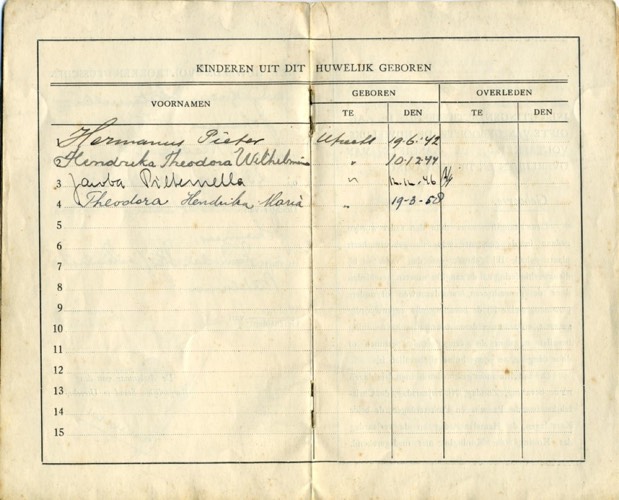 KINDEREN UIT DIT HUWELIJK GEBOREN
VOORNAMEN GEBOREN OVERLEDEN
TE DEN TE DEN
Hermanus Pieter Utrecht 19-6-'42
Hendrika Theodora Wilhelmina " 10-12-44
3 Jacoba Pitternella " 12-12-'46
4 Theodora Hendrika Maria " 19-3-50
5
6
7
8
9
10
11
12
13
14
15